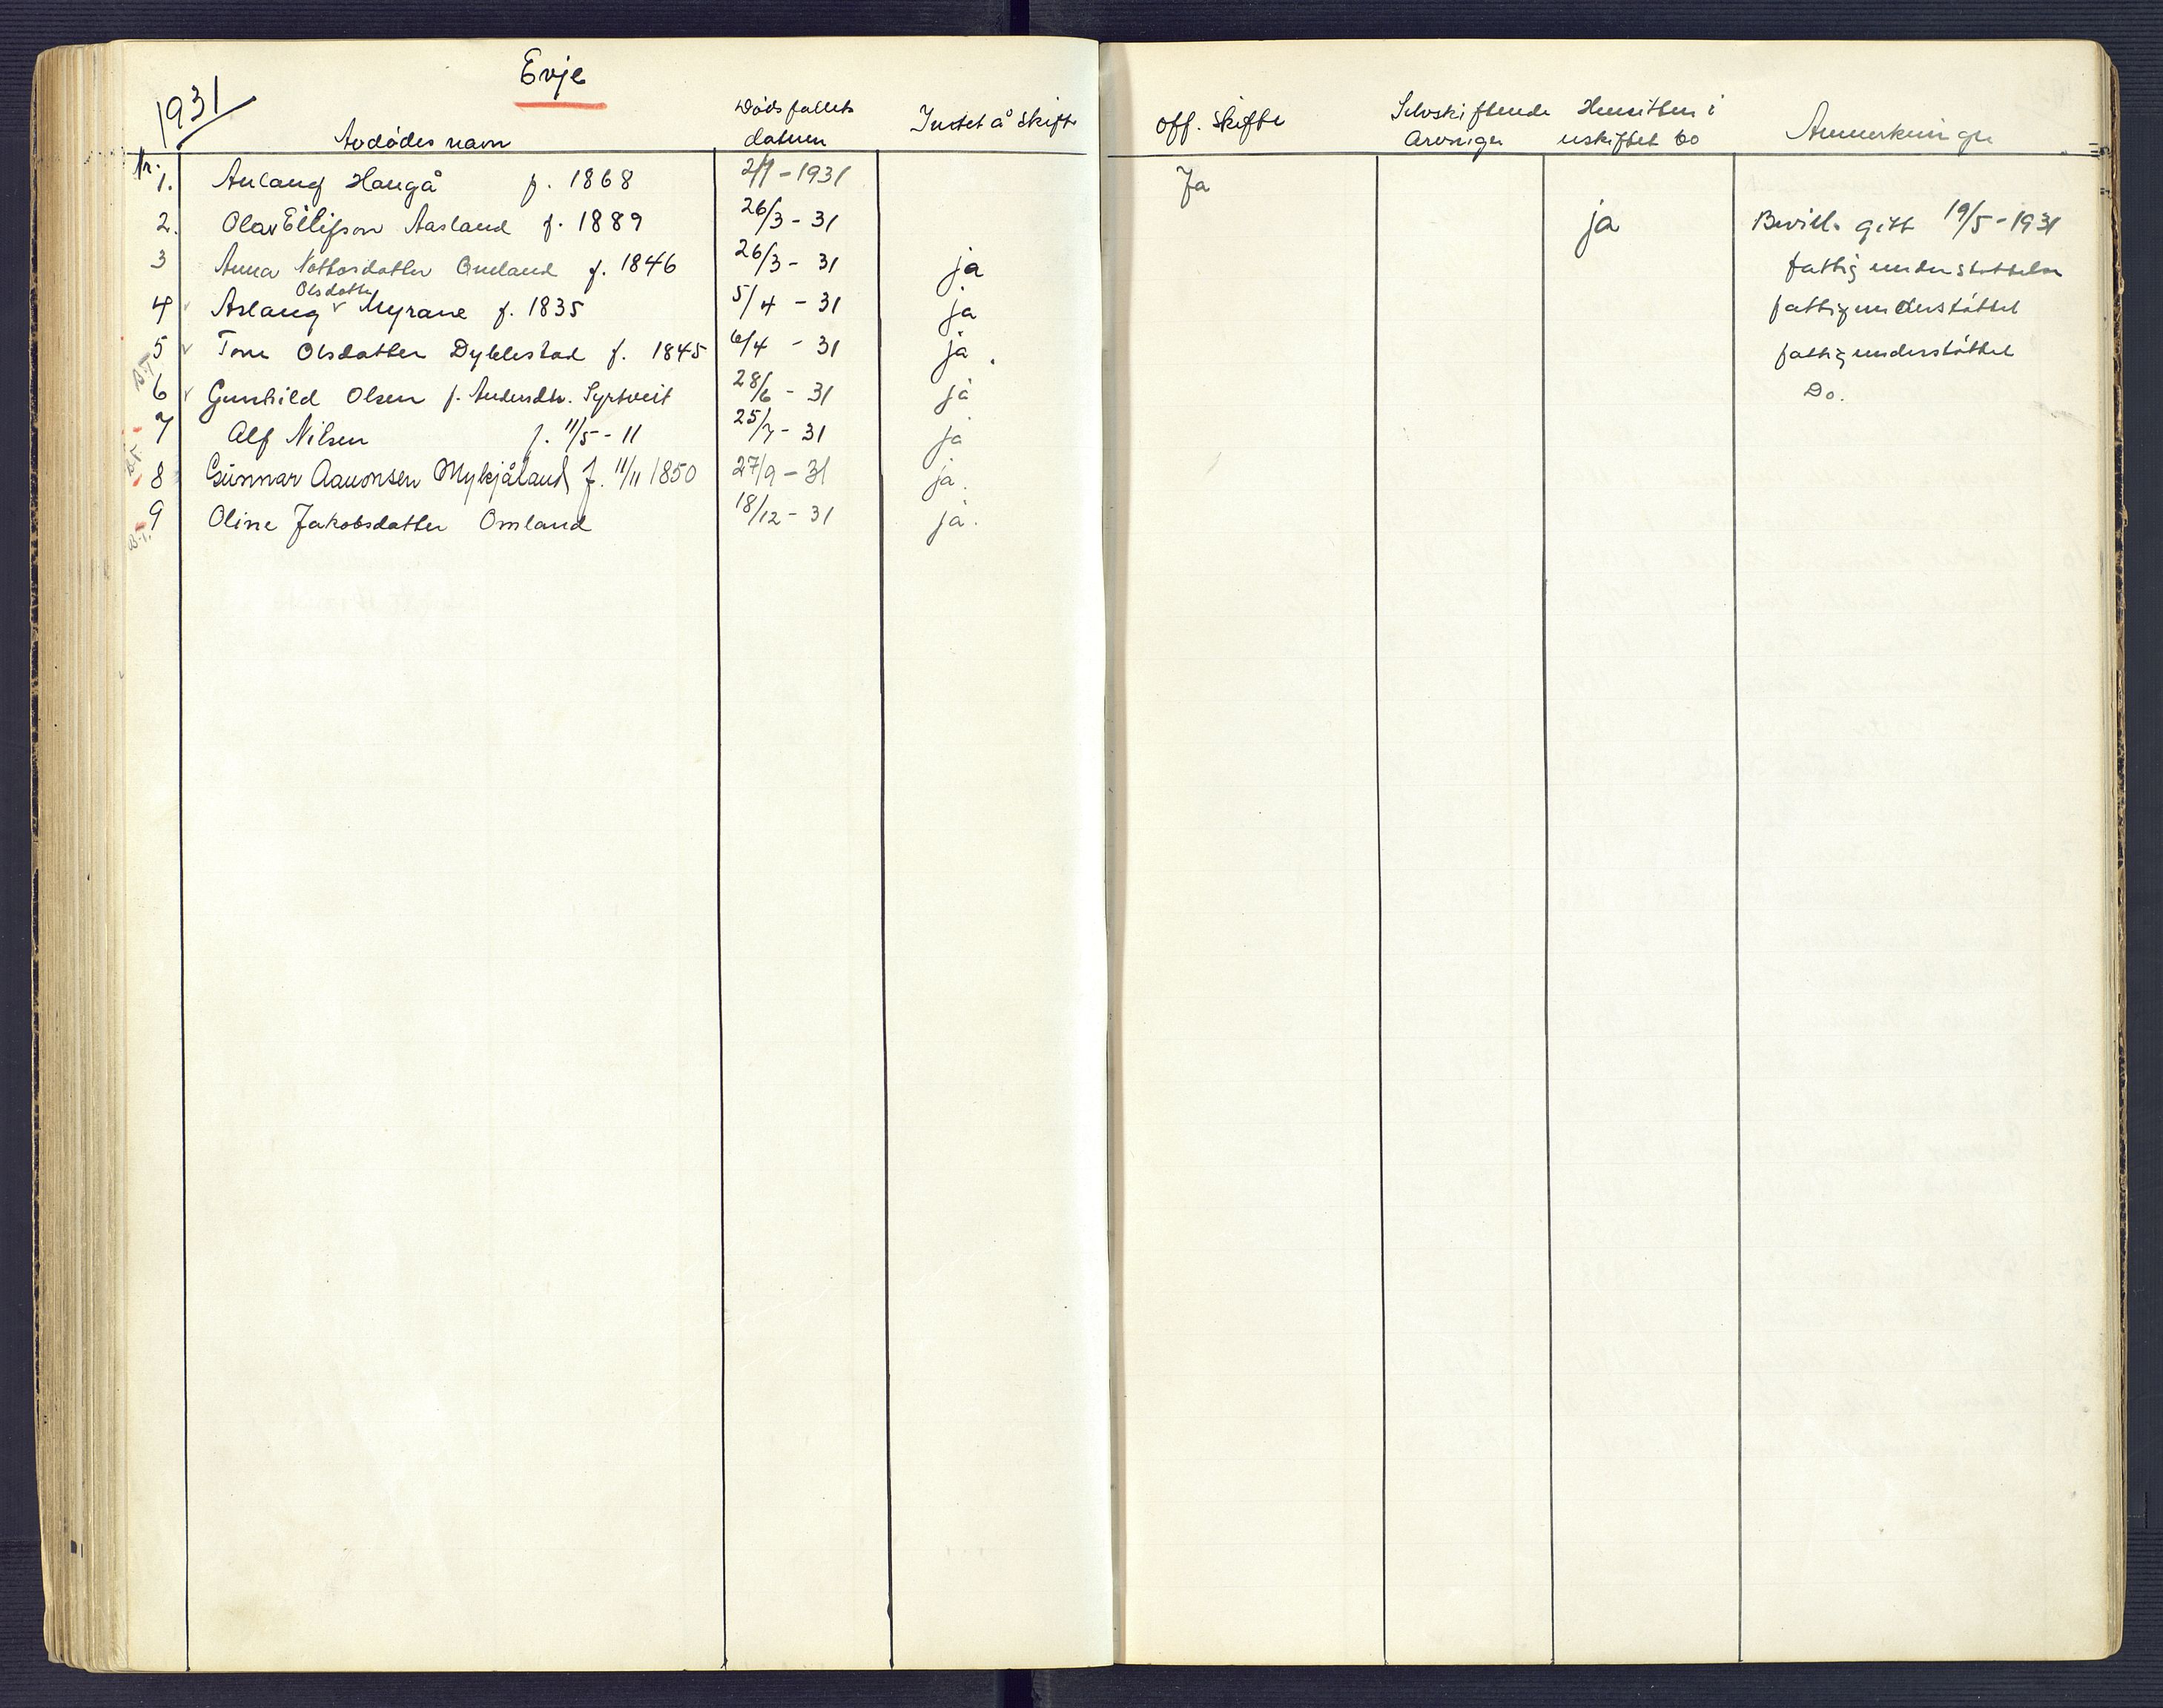 Evje
1931
Avdødes navn Dødsfallets datum Intet å skifte Off. skifte Selvskiftende arvinger Hensitten i uskiftet bo Anmerkninger
Nr.
1. Aslaug Haugå f. 1868 2/1 - 1931 Ja
2. Olav Ellifson Aasland f. 1889 26/3 - 31 ja Bevill. gitt 19/5 - 1931
3 Anna Nottosdatter Omland f. 1846 26/3 - 31 ja fattigunderstøttelse
Olsdatter
4 Aslaug Myrane f. 1835 5/4 - 31 ja fattigunderstøttet
5 Tone Olsdatter Dyblestad f. 1845 6/4 - 31 ja. fattigunderstøttet
B.f.
6 Gunhild Olsen f. Andersdtr. Syrtveit 28/6 - 31 ja Do.
7 Alf Nilsen f. 11/5 - 11 25/7 - 31 ja
B.f.
8 Gunnar Aanonsen Mykjåland f. 11/11 1850 27/9 - 31 ja.
9 Oline Jakobsdatter Omland 18/12 - 31 ja.
B.f.